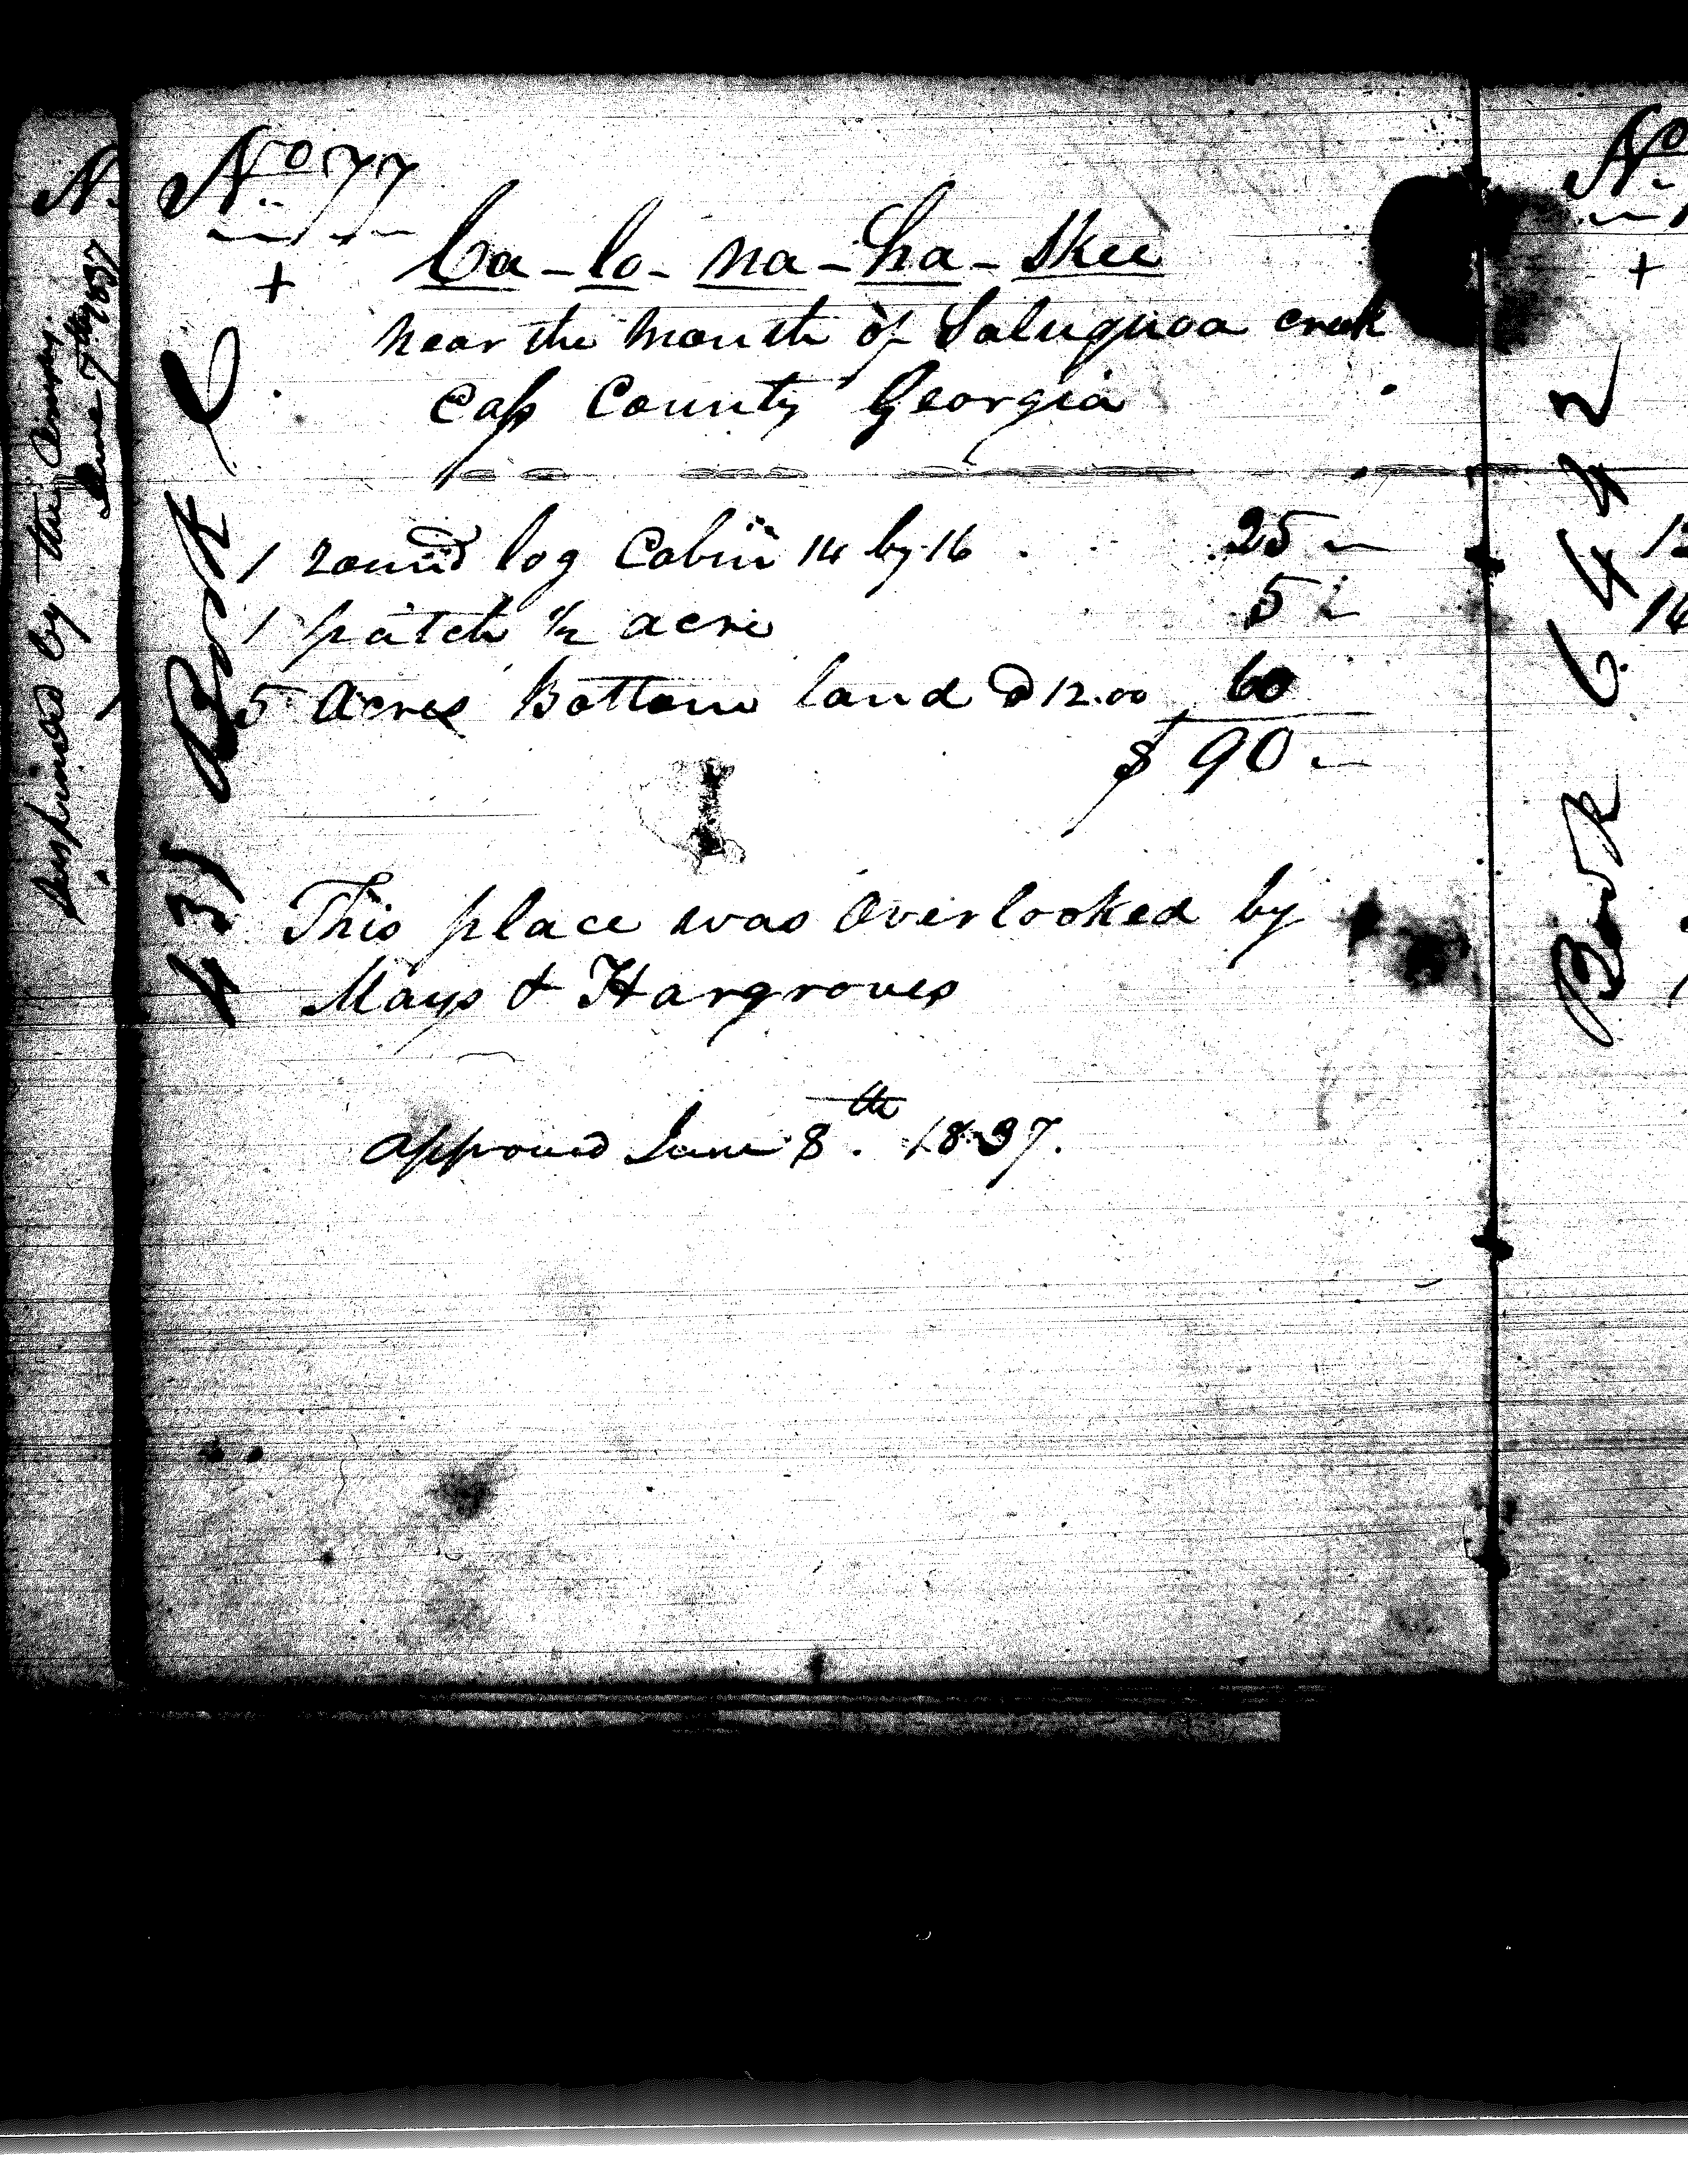 No 77
+
Ca-lo-na-ha-skee
near the mouth of Saluquoa creek
Cass County Georgia
1 round log Cabin 14 by 16 25
1 patch 1/2 acre 5
5 Acres Bottom land @ 12.00 60
$ 90
This place was Overlooked by
Mays & Hargroves
approved June 8th. 1837.
Book C
June 7th 1837
No
+
Book C 442